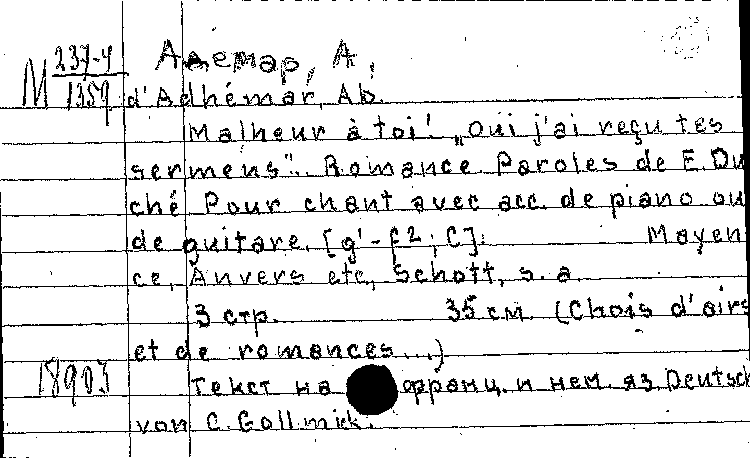 М 237-4
1359
Адемар, А.
d'Adhémar, Ab.
Malheur à toi! „Oui j'ai reçu tes
sermens". Romance. Paroles de E. Du
ché Pour chant avec acc. de piano ou
de guitare. [g'-f2; C]. Mayen
ce, Anvers etc, Schott, s. a.
3 стр. 35 см. (Chois d'airs
et de romances...)
18903
Текст на франц. и нем. яз. Deutsch
von C. Gollmick.